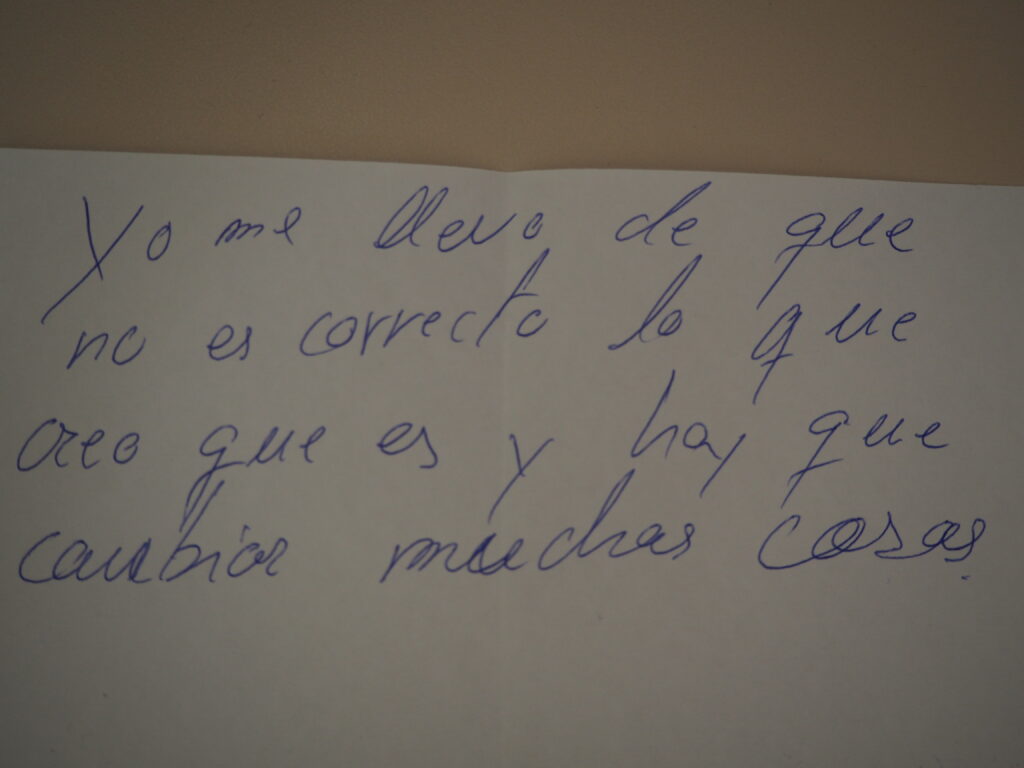 Yo me llevo de que
no es correcto lo que
creo que es y hay que
cambiar muchas cosas.